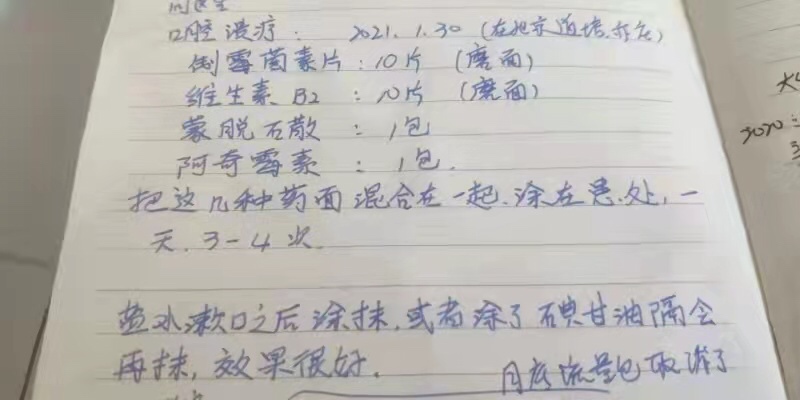 口腔溃疡: 2021.1.30 (在北京道培.亦庄)
制霉菌素片:10片 (磨面)
维生素 B2 :10片 (磨面)
蒙脱石散 : 1包
阿奇霉素 : 1包.
把这几种药面混合在一起.涂在患.处,一
天.3-4次.
盐水漱口之后涂抹,或者涂了碘甘油隔会
再抹,效果很好.
月底流量包取消了
3020: